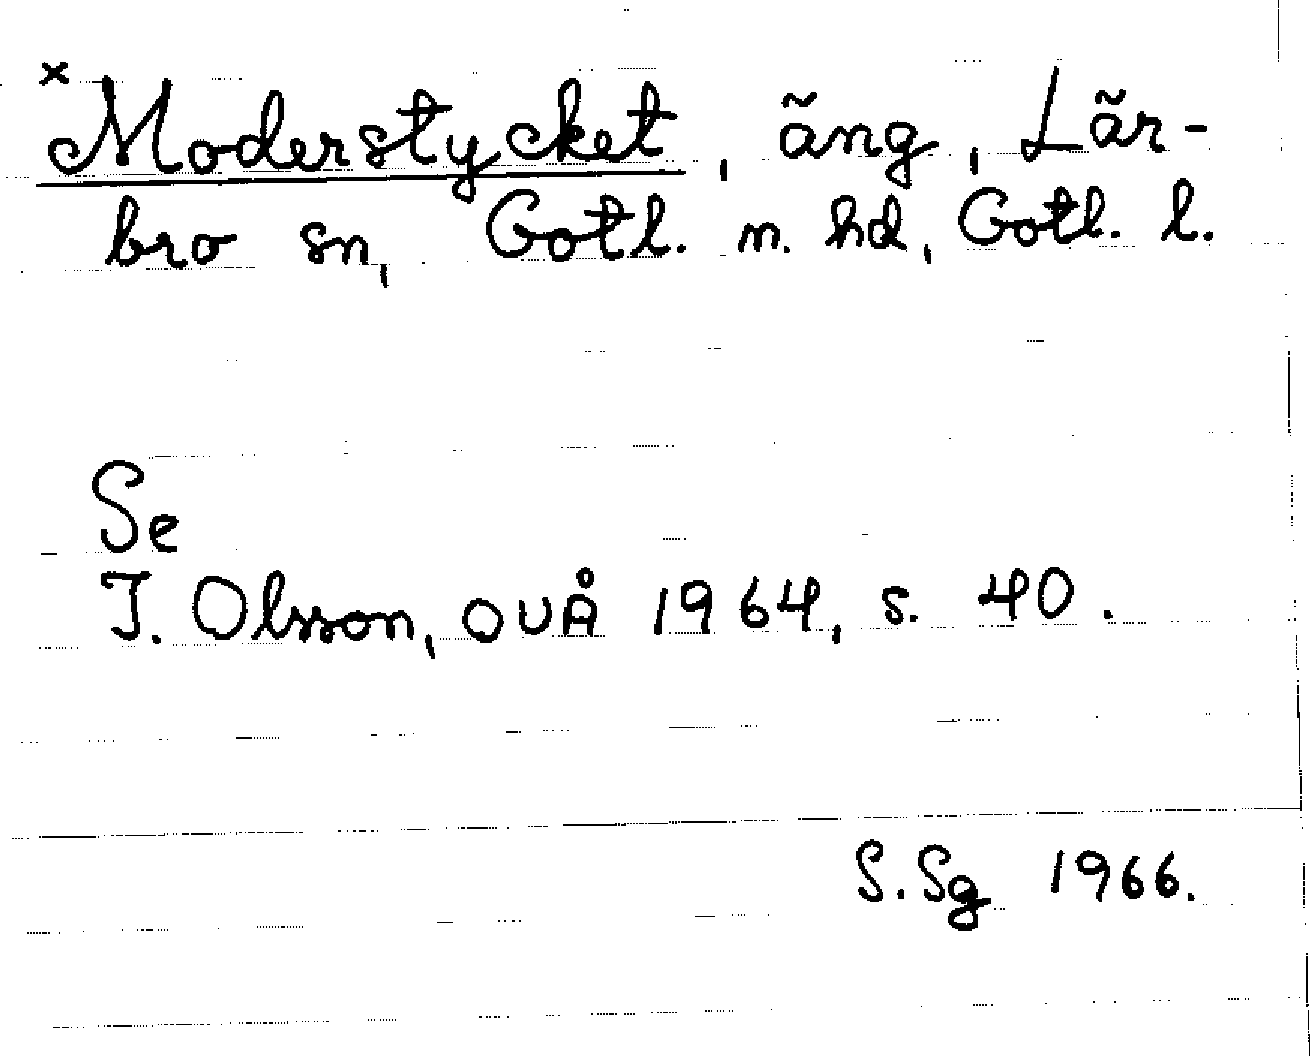 ×Moderstycket, äng, Lär-
bro sn, Gotl. n. hd, Gotl. l.
Se
I. Olsson, OUÅ 1964, s. 40.
S. Sg 1966.